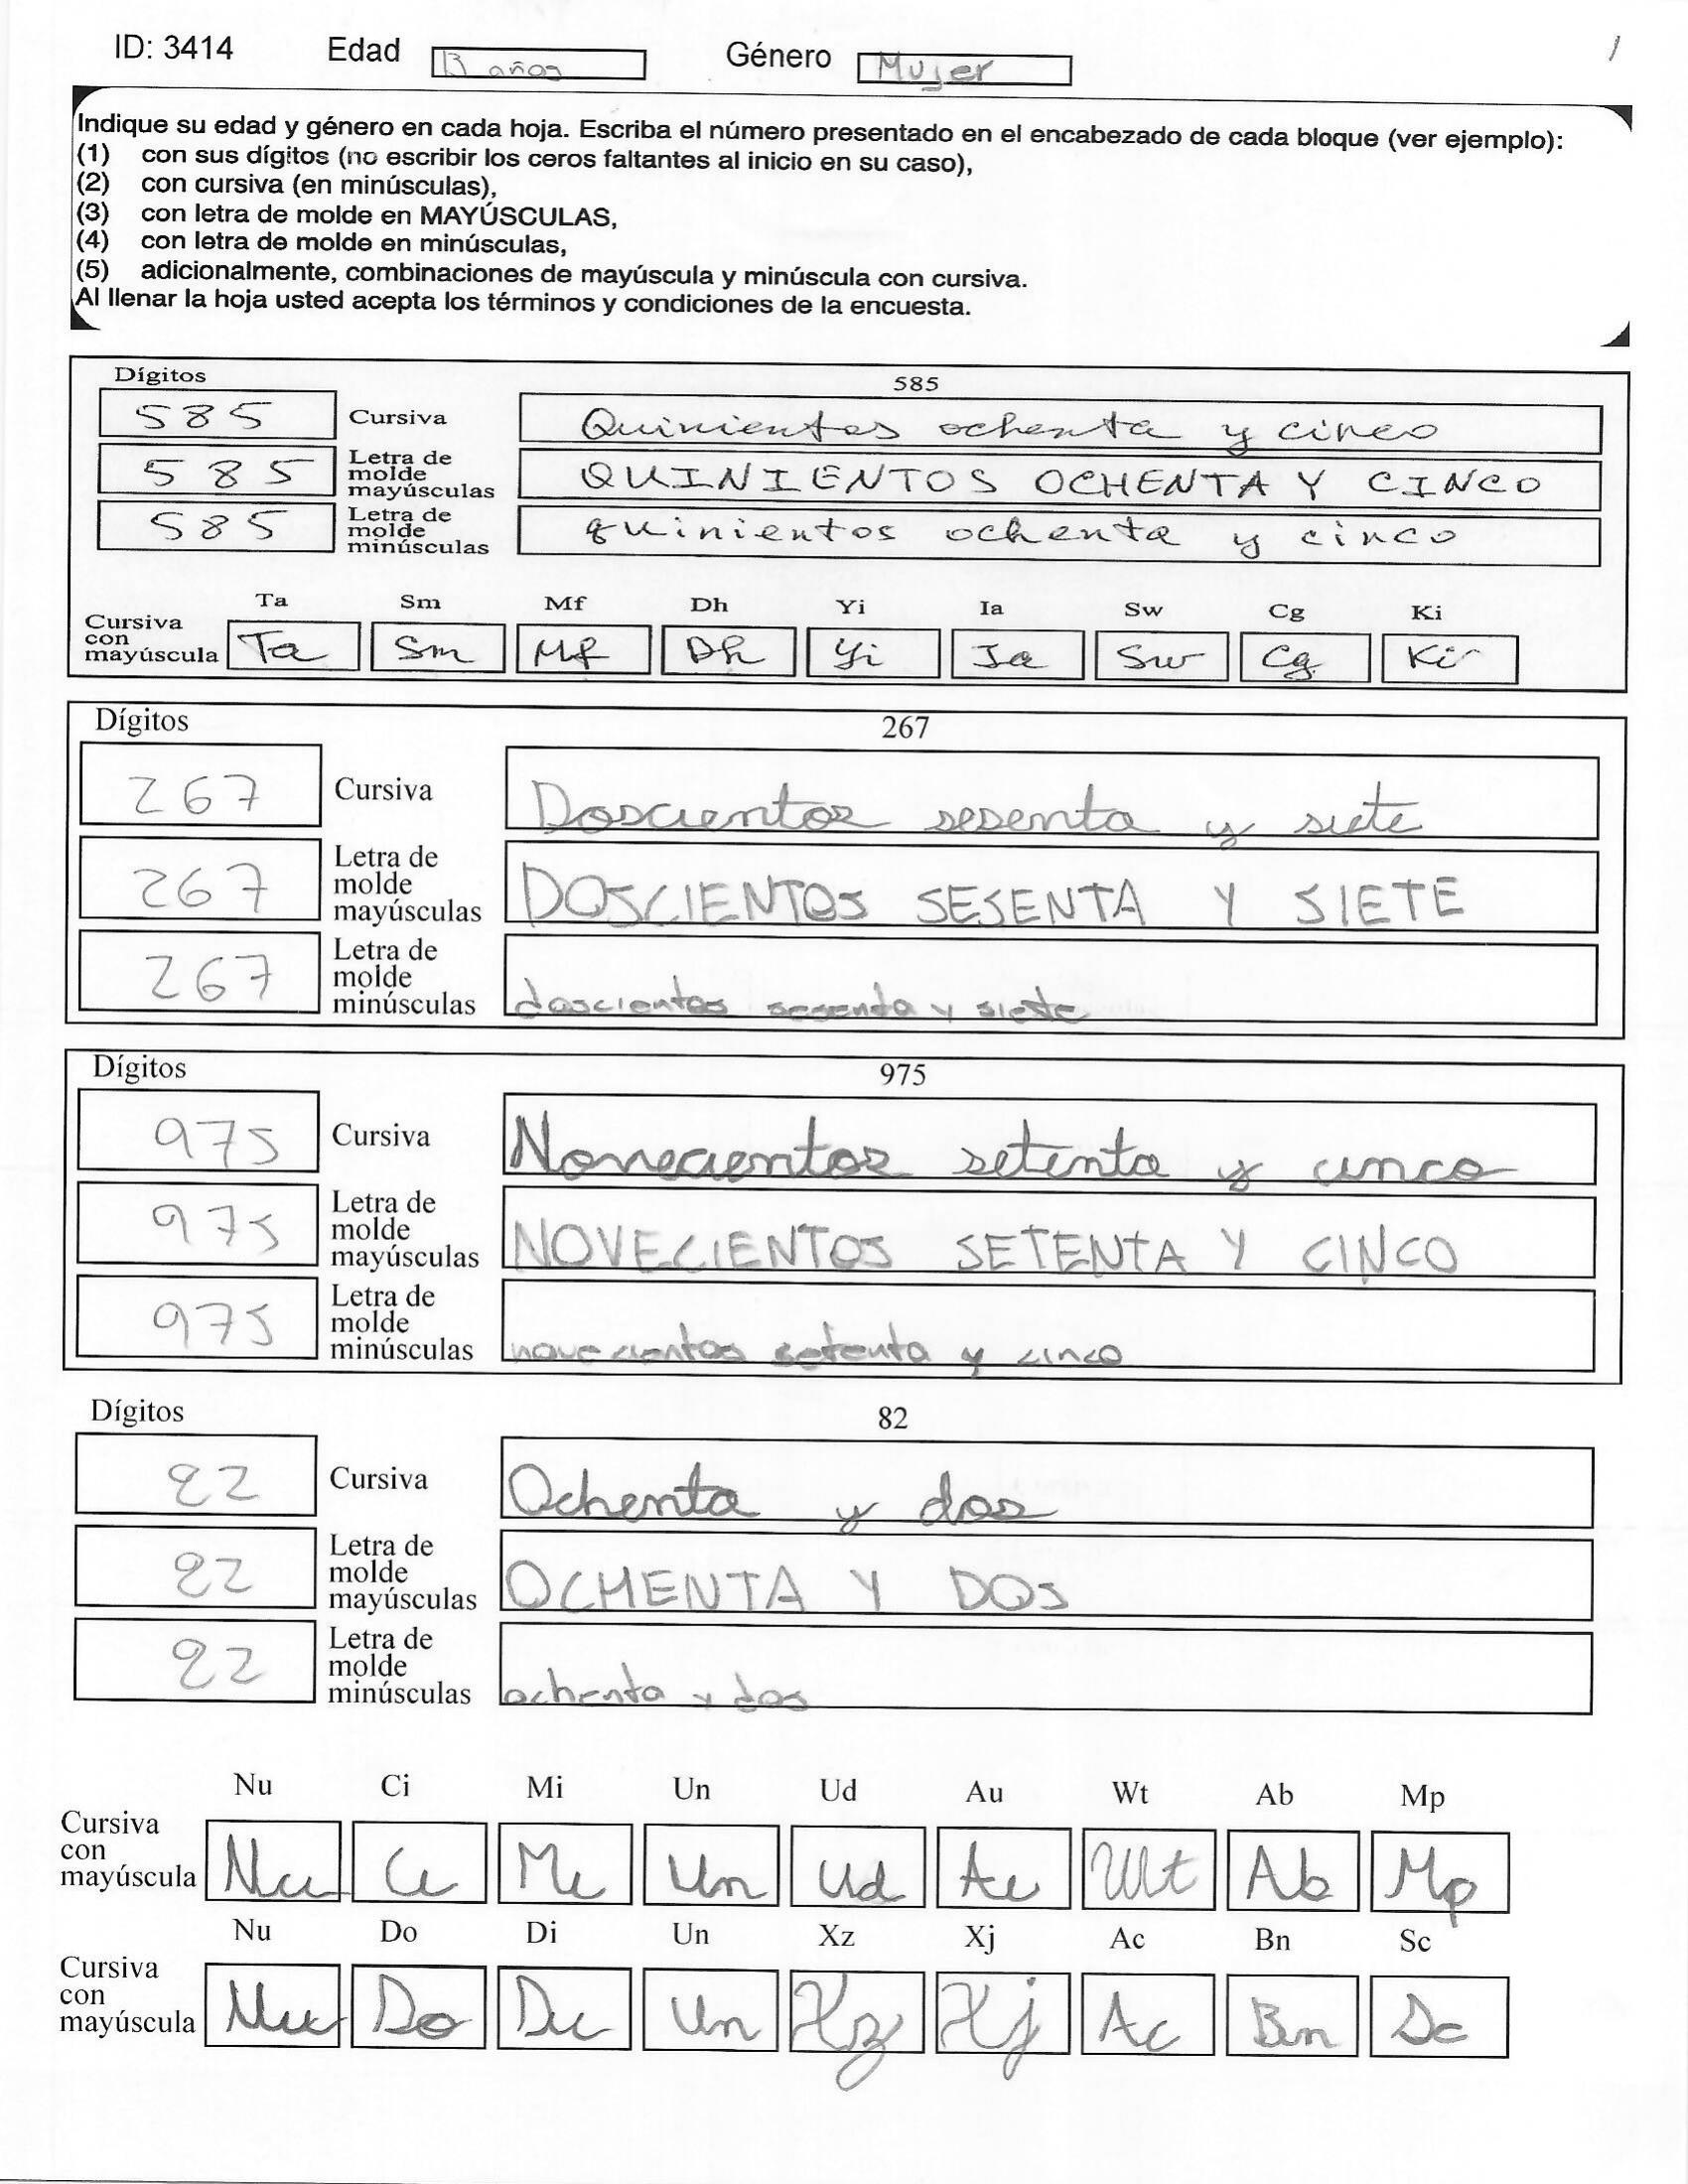 ID: 3414 Edad 13 años Género Mujer 1
Indique su edad y género en cada hoja. Escriba el número presentado en el encabezado de cada bloque (ver ejemplo):
(1) con sus dígitos (no escribir los ceros faltantes al inicio en su caso),
(2) con cursiva (en minúsculas),
(3) con letra de molde en MAYÚSCULAS,
(4) con letra de molde en minúsculas,
(5) adicionalmente, combinaciones de mayúscula y minúscula con cursiva.
Al llenar la hoja usted acepta los términos y condiciones de la encuesta.
Dígitos 585
585 Cursiva Quinientos ochenta y cinco
585 Letra de molde mayúsculas QUINIENTOS OCHENTA Y CINCO
585 Letra de molde minúsculas quinientos ochenta y cinco
Ta Sm Mf Dh Yi Ia Sw Cg Ki
Cursiva con mayúscula Ta Sm Mf Dh Yi Ia Sw Cg Ki
Dígitos 267
267 Cursiva Doscientos sesenta y siete
267 Letra de molde mayúsculas DOSCIENTOS SESENTA Y SIETE
267 Letra de molde minúsculas doscientos sesenta y siete
Dígitos 975
975 Cursiva Novecientos setenta y cinco
975 Letra de molde mayúsculas NOVECIENTOS SETENTA Y CINCO
975 Letra de molde minúsculas novecientos setenta y cinco
Dígitos 82
82 Cursiva Ochenta y dos
82 Letra de molde mayúsculas OCHENTA Y DOS
82 Letra de molde minúsculas ochenta y dos
Nu Ci Mi Un Ud Au Wt Ab Mp
Cursiva con mayúscula Nu Ci Mi Un Ud Au Wt Ab Mp
Nu Do Di Un Xz Xj Ac Bn Sc
Cursiva con mayúscula Nu Do Di Un Xz Xj Ac Bn Sc